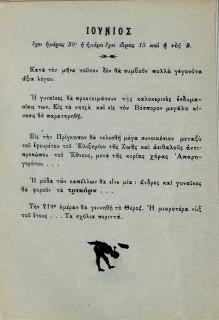 ΙΟΥΝΙΟΣ
ἔχει ἡμέρας 30· ἡ ἡμέρα ἔχει ὥρας 15 καὶ ἡ νὺξ 9.
Κατὰ τὸν μῆνα τοῦτον δὲν θὰ συμβοῦν πολλὰ γεγονότα
ἄξια λόγου.
Ἡ γυναῖκες θὰ προετοιμάσουν τῂς καλοκερινὲς ἐνδυμα-
σίες των. Εἰς τὰ νησιὰ καὶ εἰς τὸν Βόσπορον μεγάλη κί-
νησις θὰ παρατηρηθῇ.
Εἰς τὴν Πρίγκηπον θὰ τελεσθῇ μέγα συνοικέσιον μεταξὺ
τοῦ ἐφευρέτου τοῦ Ἐλιξιρίου τῆς Ζωῆς καὶ ἀειθαλοῦς ἀντι-
προσώπου τοῦ Ἔθνους, μετὰ τῆς κυρίας χήρας Ἀπαρη-
γορήτου . . .
Ἡ μόδα τῶν καπέλλων θὰ εἶνε μία· ἄνδρες καὶ γυναῖκες
θὰ φοροῦν τὰ τρικὸρν . . .
Τὴν 21ην ἡμέραν θὰ γεννηθῇ τὸ Θέρος. Ἡ μικροτέρα νὺξ
τοῦ ἔτους . . . Τὰ σχόλια περιττά.